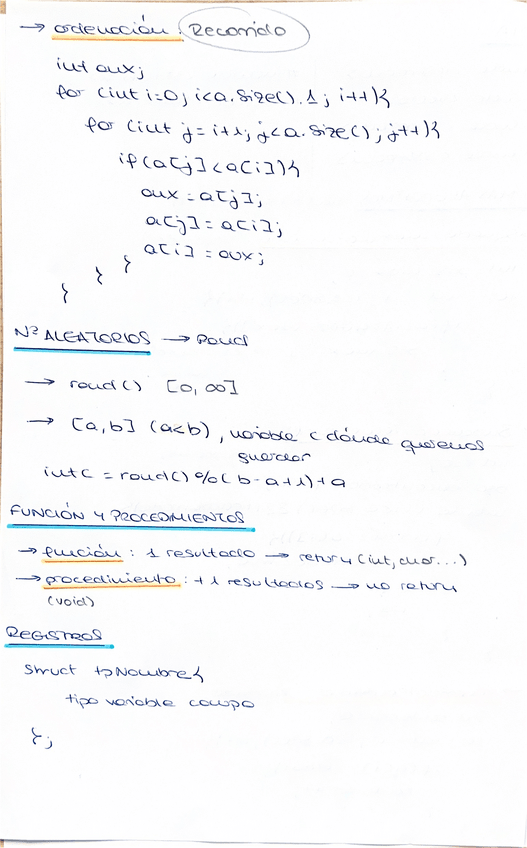 → ordenación: Recorrido
int aux;
for (int i=0; i<a.size().1; i++){
for (int j=i+1; j<a.size(); j++){
if(a[j]<a[i]){
aux = a[j];
a[j] = a[i];
a[i] = aux;
}
}
}
Nº ALEATORIOS → Rand
→ rand() [0, ∞]
→ [a,b] (a<b), variable c dónde queremos
guardar
int c = rand()%(b-a+1)+a
FUNCIÓN Y PROCEDIMIENTOS
→ función: 1 resultado → return (int, char...)
→ procedimiento: +1 resultados → no return
(void)
REGISTROS
Struct tpNombre{
tipo variable campo
};